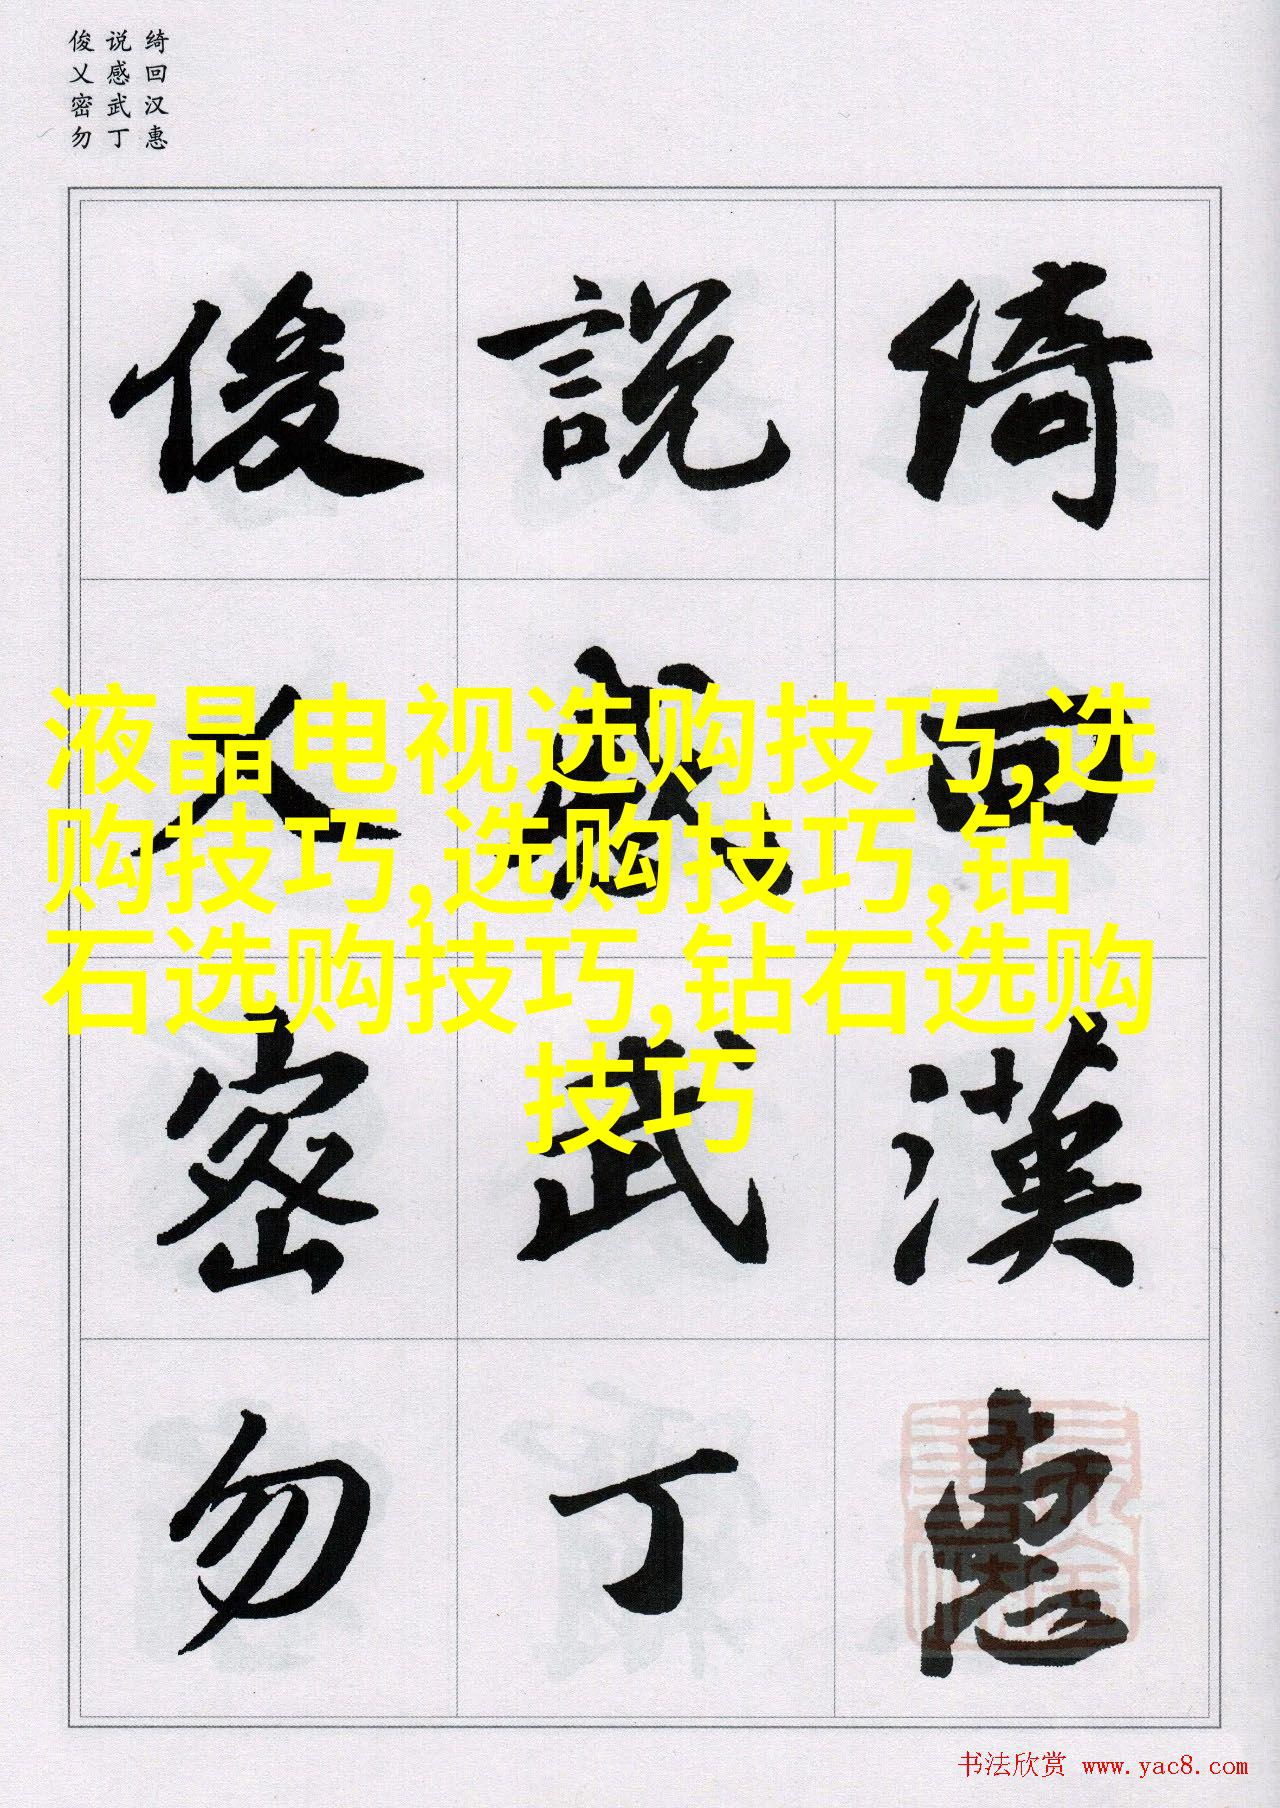 绮回汉惠
说感武丁
俊乂密勿
綺
回
漢
惠
說
感
武
丁
俊
乂
密
勿
液晶电视选购技巧,选
购技巧,选购技巧,钻
石选购技巧,钻石选购
技巧
书法欣赏 www.yac8.com